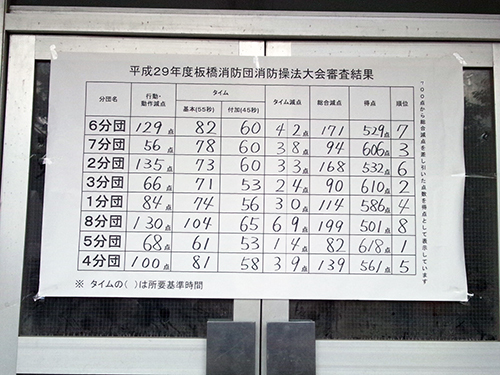 平成29年度板橋消防団消防操法大会審査結果
分団名 行動・動作減点 タイム 基本(55秒) 付加(45秒) タイム減点 総合減点 得点 順位
6分団 129点 82 60 42点 171 529点 7
7分団 56点 78 60 38点 94 606点 3
2分団 135点 73 60 33点 168 532点 6
3分団 66点 71 53 24点 90 610点 2
1分団 84点 74 56 30点 114 586点 4
8分団 130点 104 65 69点 199 501点 8
5分団 68点 61 53 14点 82 618点 1
4分団 100点 81 58 39点 139 561点 5
※ タイムの( )は所要基準時間
700点から総合減点を差し引いた点数を得点として表示しています